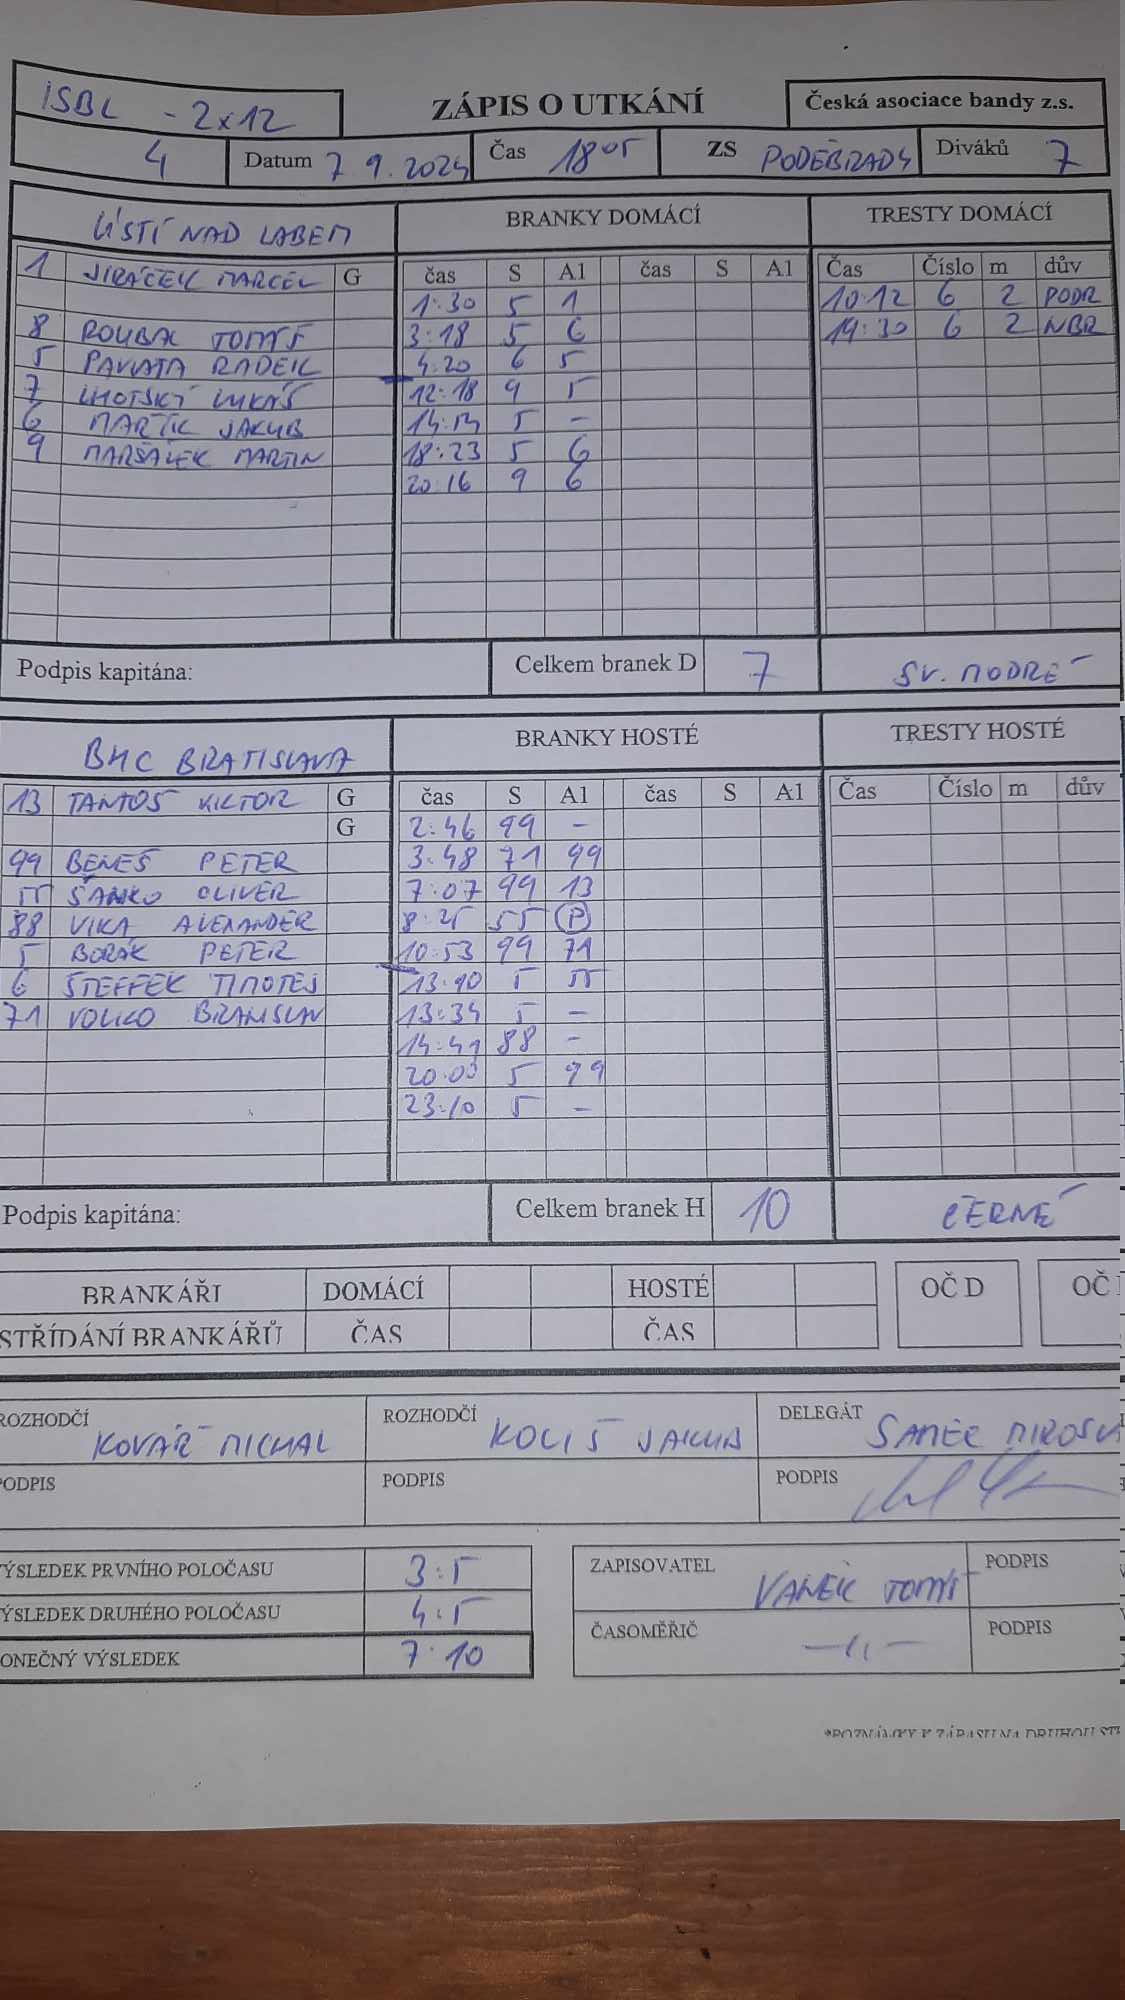 ISBL - 2x12 ZÁPIS O UTKÁNÍ Česká asociace bandy z.s.
4 Datum 7 9. 2024 Čas 18 05 ZS PODĚBRADY Diváků 7
ÚSTÍ NAD LABEM BRANKY DOMÁCÍ TRESTY DOMÁCÍ
1 JIRÁČEK MARCEL G čas S A1 čas S A1 Čas Číslo m dův
1:30 5 1 10:12 6 2 PODR
8 ROUBAL TOMÁŠ 3:18 5 6 19:30 6 2 NBR
5 PAVLATA RADEK 4:20 6 5
7 LHOTSKÝ LUKÁŠ 12:18 9 5
6 MARTÍK JAKUB 5 -
9 MARŠÁLEK MARTIN 18:23 5 6
20:16 9 6
Podpis kapitána: Celkem branek D 7 SV. MODRÉ
BHC BRATISLAVA BRANKY HOSTÉ TRESTY HOSTÉ
13 TANTOŠ VIKTOR G čas S A1 čas S A1 Čas Číslo m dův
G 2:46 99 -
99 BENEŠ PETER 3:48 71 99
55 ŠANKO OLIVER 7:07 99 13
88 VIKA ALEXANDER 8:25 55 P
5 BORÁK PETER 10:53 99 71
6 ŠTEFFEK TIMOTEJ 13:10 5 55
71 VOLKO BRANISLAV 13:34 5 -
14:41 88 -
20:03 5 99
23:10 5 -
Podpis kapitána: Celkem branek H 10 ČERNÉ
BRANKÁŘI DOMÁCÍ HOSTÉ OČ D OČ
STŘÍDÁNÍ BRANKÁŘŮ ČAS ČAS
ROZHODČÍ KOVÁŘ MICHAL ROZHODČÍ KOLIŠ JAKUB DELEGÁT SAMEC MIROSL
PODPIS PODPIS PODPIS
VÝSLEDEK PRVNÍHO POLOČASU 3:5 ZAPISOVATEL VANĚK TOMÁŠ PODPIS
VÝSLEDEK DRUHÉHO POLOČASU 4:5
ČASOMĚŘIČ -11- PODPIS
ONEČNÝ VÝSLEDEK 7:10
*POZNÁMKY K ZÁPASU NA DRUHOU ST